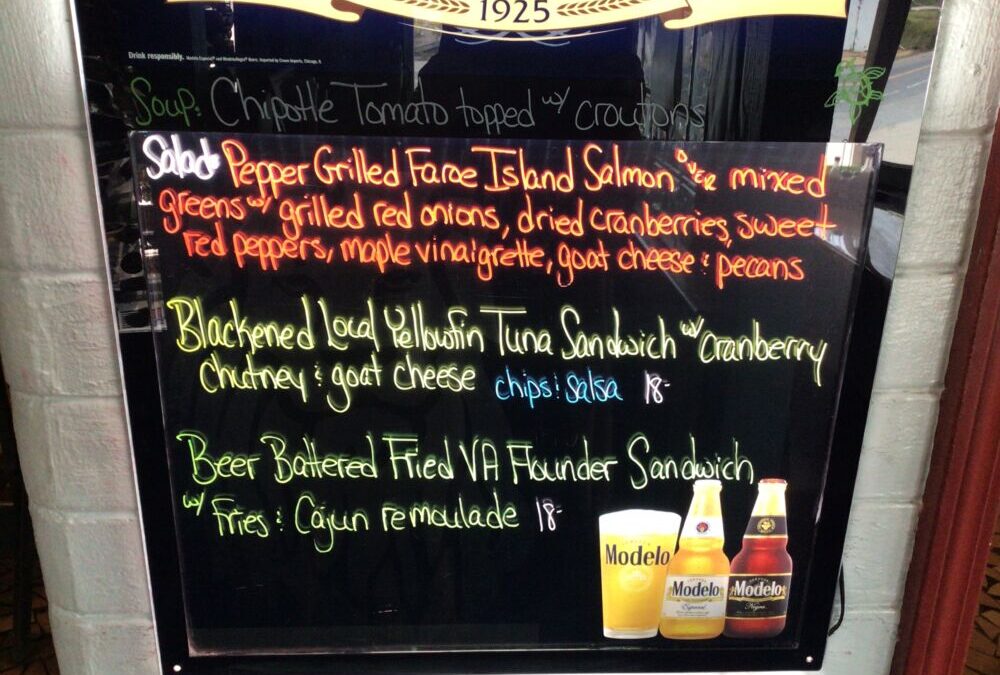 1925
Drink responsibly. Modelo Especial® and Modelo Negra® Beers. Imported by Crown Imports, Chicago, IL
Soup: Chipotle Tomato topped w/ croutons
Salad: Pepper Grilled Faroe Island Salmon over mixed
greens w/ grilled red onions, dried cranberries, sweet
red peppers, maple vinaigrette, goat cheese & pecans
Blackened Local Yellowfin Tuna Sandwich w/ cranberry
Chutney & goat cheese chips & salsa 18-
Beer Battered Fried VA Flounder Sandwich
w/ Fries & Cajun remoulade 18-
Modelo
Modelo
Especial
Modelo
Negra